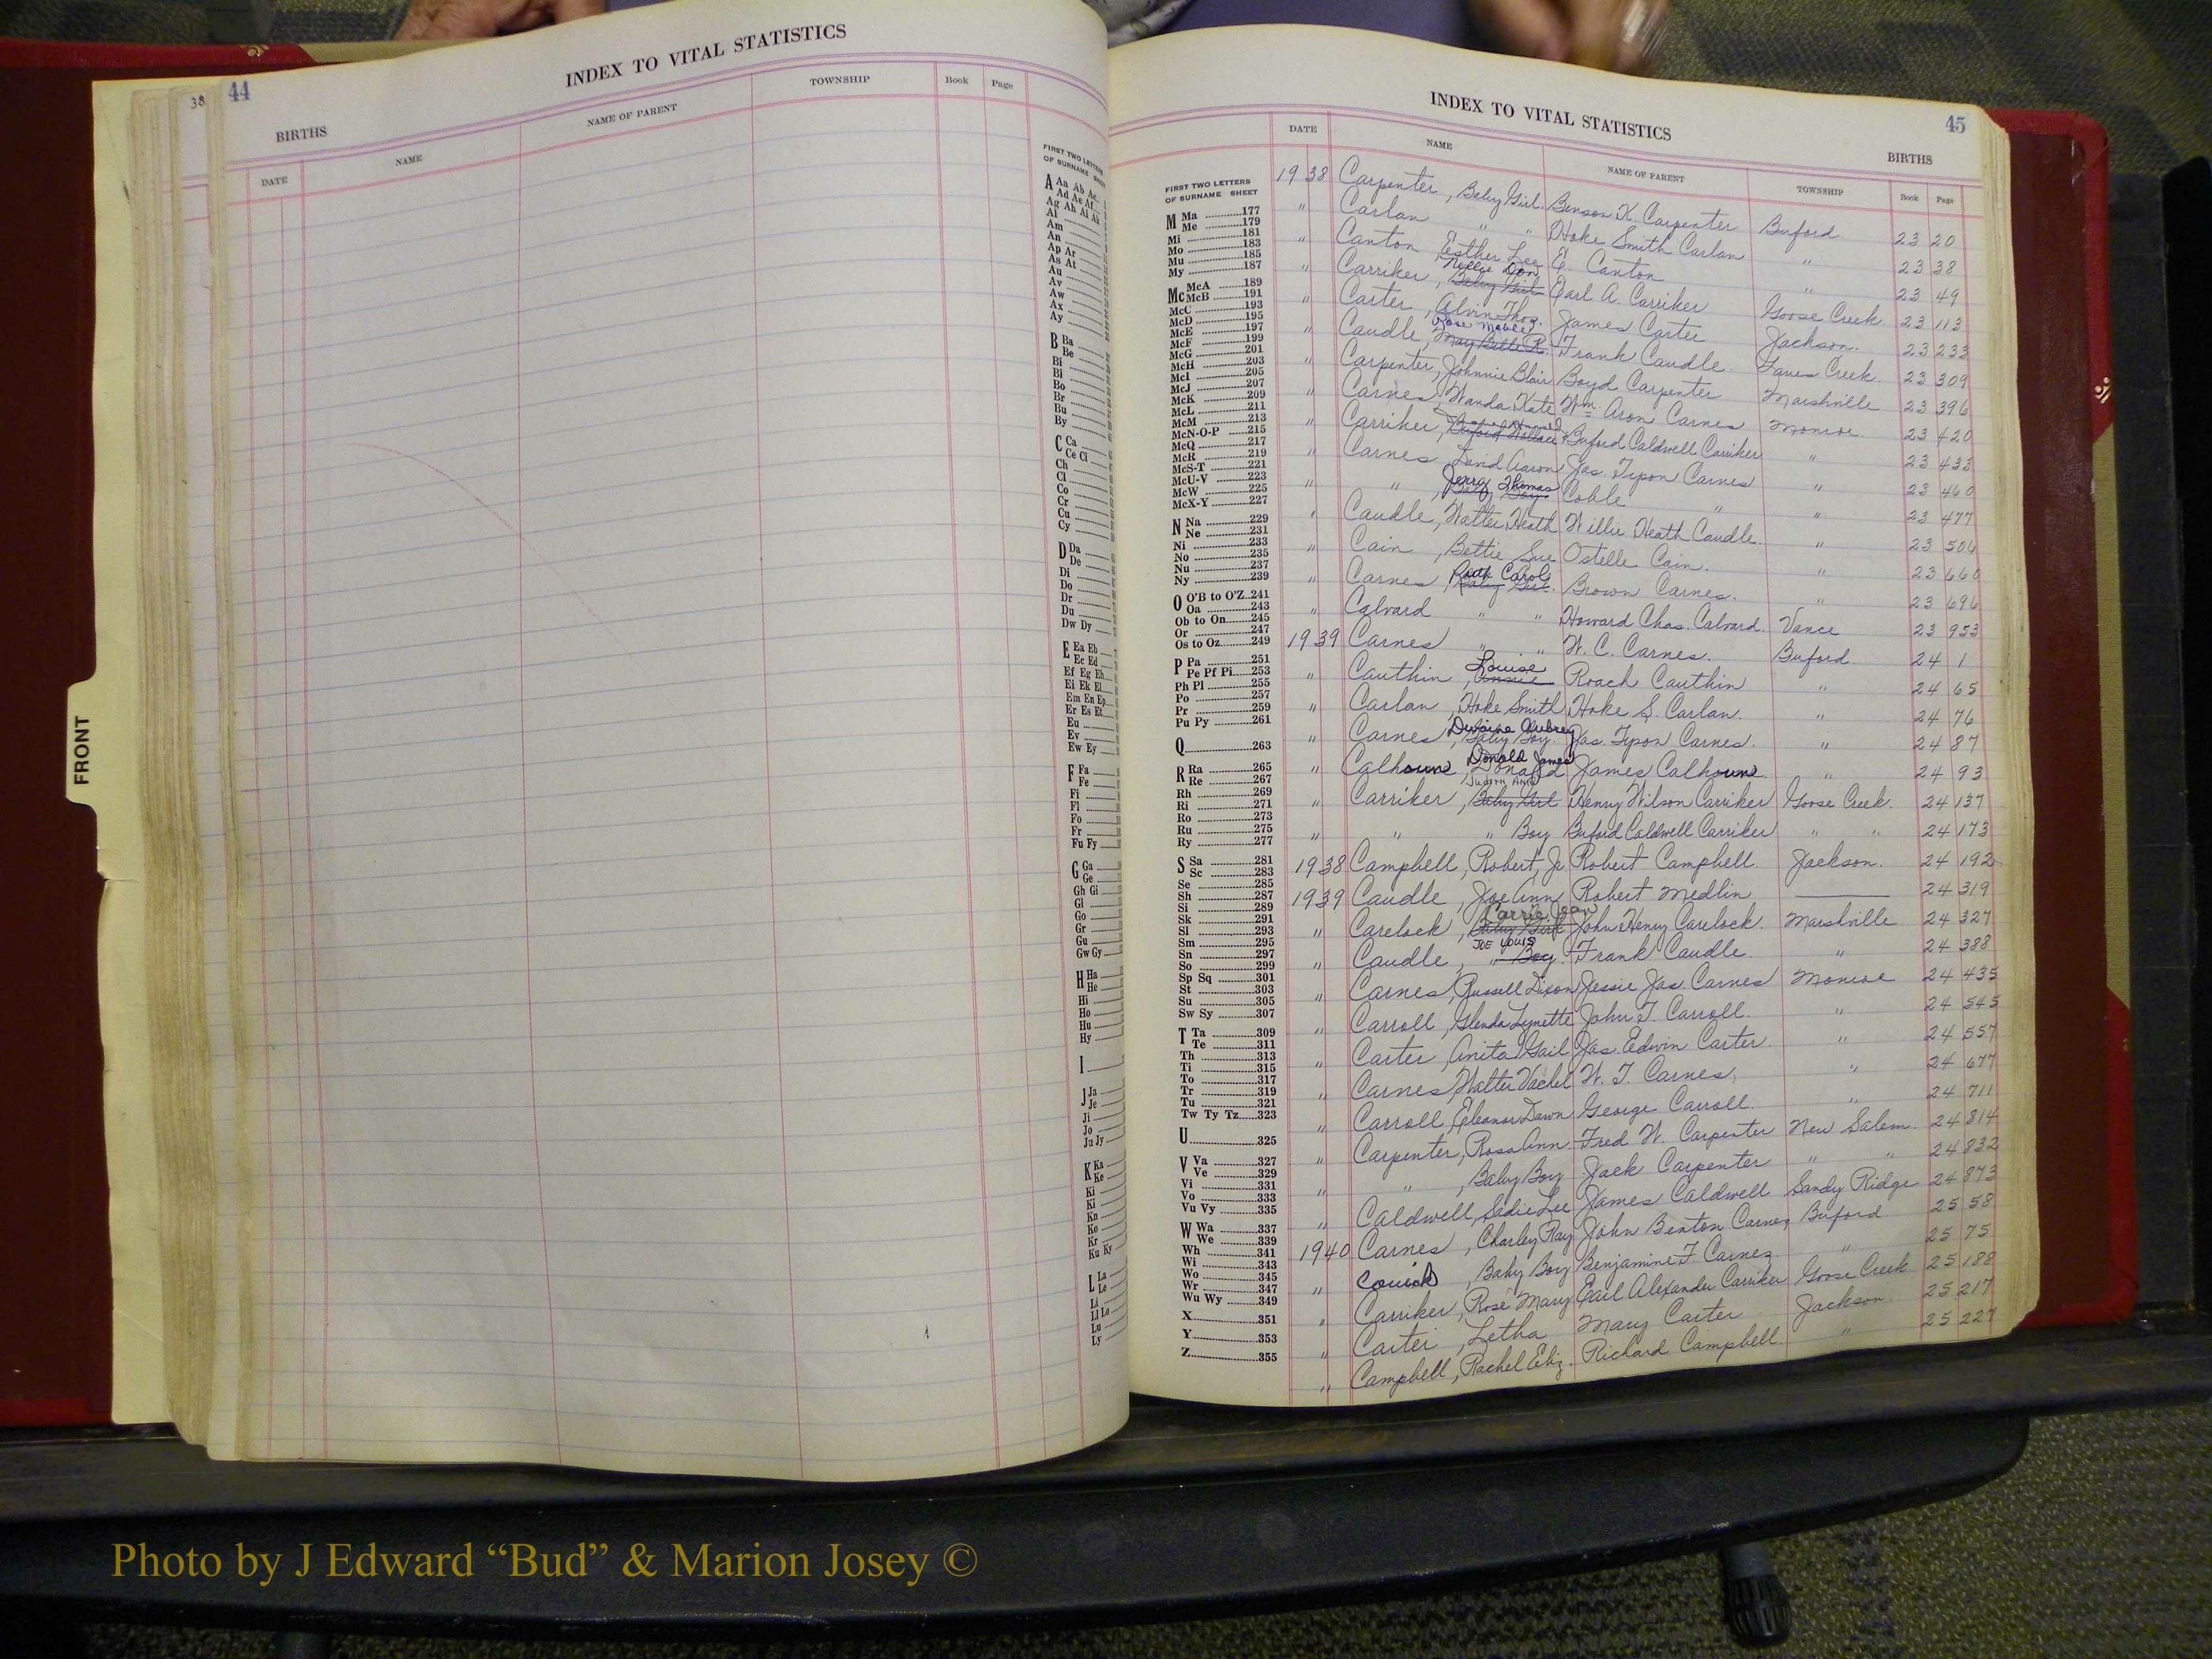 38
44
INDEX TO VITAL STATISTICS
BIRTHS
DATE NAME NAME OF PARENT TOWNSHIP Book Page
FIRST TWO LETTERS
OF SURNAME SHEET
A Aa Ab Ac
Ad Ae Af
Ag Ah Ai Ak
Al
Am
An
Ap Ar
As At
Au
Av
Aw
Ax
Ay
B Ba
Be
Bi
Bl
Bo
Br
Bu
By
C Ca
Ce Ci
Ch
Cl
Co
Cr
Cu
Cy
D Da
De
Di
Do
Dr
Du
Dw Dy
E Ea Eb
Ec Ed
Ef Eg Eh
Ei Ek El
Em En Ep
Er Es Et
Eu
Ev
Ew Ey
F Fa
Fe
Fi
Fl
Fo
Fr
Fu Fy
G Ga
Ge
Gh Gi
Gl
Go
Gr
Gu
Gw Gy
H Ha
He
Hi
Ho
Hu
Hy
I
J Ja
Je
Ji
Jo
Ju Jy
K Ka
Ke
Ki
Kl
Kn
Ko
Kr
Ku Ky
L La
Le
Li
Ll Lo
Lu
Ly
FRONT
INDEX TO VITAL STATISTICS
45
BIRTHS
DATE NAME NAME OF PARENT TOWNSHIP Book Page
FIRST TWO LETTERS
OF SURNAME SHEET
M Ma 177
Me 179
Mi 181
Mo 183
Mu 185
My 187
Mc McA 189
McB 191
McC 193
McD 195
McE 197
McF 199
McG 201
McH 203
McI 205
McJ 207
McK 209
McL 211
McM 213
McN-O-P 215
McQ 217
McR 219
McS-T 221
McU-V 223
McW 225
McX-Y 227
N Na 229
Ne 231
Ni 233
No 235
Nu 237
Ny 239
O O'B to O'Z 241
Oa 243
Ob to On 245
Or 247
Os to Oz 249
P Pa 251
Pe Pf Pi 253
Ph Pl 255
Po 257
Pr 259
Pu Py 261
Q 263
R Ra 265
Re 267
Rh 269
Ri 271
Ro 273
Ru 275
Ry 277
S Sa 281
Sc 283
Se 285
Sh 287
Si 289
Sk 291
Sl 293
Sm 295
Sn 297
So 299
Sp Sq 301
St 303
Su 305
Sw Sy 307
T Ta 309
Te 311
Th 313
Ti 315
To 317
Tr 319
Tu 321
Tw Ty Tz 323
U 325
V Va 327
Ve 329
Vi 331
Vo 333
Vu Vy 335
W Wa 337
We 339
Wh 341
Wi 343
Wo 345
Wr 347
Wu Wy 349
X 351
Y 353
Z 355
1938 Carpenter, Baby Girl Benson K. Carpenter Buford 23 20
" Carlan " " Hoke Smith Carlan " 23 38
" Canton, Esther Lee E. Canton " 23 49
" Carriker, Nellie Don Baby Girl Earl A. Carriker Goose Creek 23 113
" Carter, Alvin Thos. James Carter Jackson 23 233
" Caudle, Rose Mable May Belle R. Frank Caudle Lanes Creek 23 309
" Carpenter, Johnnie Blair Boyd Carpenter Marshville 23 396
" Carnes, Wanda Kate Wm Aron Carnes Monroe 23 420
" Carriker, Buford Wallace Buford Caldwell Carriker " 23 433
" Carnes, Aaron Jas. Tyson Carnes " 23 460
" " , Jerry Thomas Baby Boy Coble " " 23 477
" Caudle, Walter Heath Willie Heath Caudle " 23 506
" Cain, Bettie Sue Ostelle Cain " 23 660
" Carnes, Ruth Carol Baby Girl Brown Carnes " 23 696
" Calvard " " Howard Chas. Calvard Vance 23 953
1939 Carnes " " W. C. Carnes Buford 24 1
" Cauthin, Louise Annie Roach Cauthin " 24 65
" Carlan, Hoke Smith Hoke S. Carlan " 24 76
" Carnes, Dwaine Aubrey Baby Boy Jas. Tyson Carnes " 24 87
" Calhoune, Donald James Donald James Calhoune " 24 93
" Carriker, Judith Ann Baby Girl Henry Wilson Carriker Goose Creek 24 137
" " " Boy Buford Caldwell Carriker " " 24 173
1938 Campbell, Robert, Jr Robert Campbell Jackson 24 192
1939 Caudle, Joe Ann Robert Medlin 24 319
" Carelock, Carrie Jean Baby Girl John Henry Carelock Marshville 24 327
" Caudle, JOE LOUIS " Boy Frank Caudle " 24 388
" Carnes, Russell Dixon Jessie Jas. Carnes Monroe 24 435
" Carroll, Glenda Lynette John T. Carroll " 24 545
" Carter, Anita Gail Jas. Edwin Carter " 24 557
" Carnes, Walter Vachel W. T. Carnes " 24 677
" Carroll, Eleanor Dawn George Carroll " 24 711
" Carpenter, Rosa Ann Fred W. Carpenter New Salem 24 814
" " , Baby Boy Jack Carpenter " " 24 832
" Caldwell, Sadie Lee James Caldwell Sandy Ridge 24 873
1940 Carnes, Charley Ray John Benton Carnes Buford 25 58
" , Baby Boy Benjamine F. Carnes " 25 75
" Carriker, Rose Mary Earl Alexander Carriker Goose Creek 25 188
" Carter, Letha Mary Carter Jackson 25 217
" Campbell, Rachel Eliz. Richard Campbell " 25 227
Photo by J Edward “Bud” & Marion Josey ©